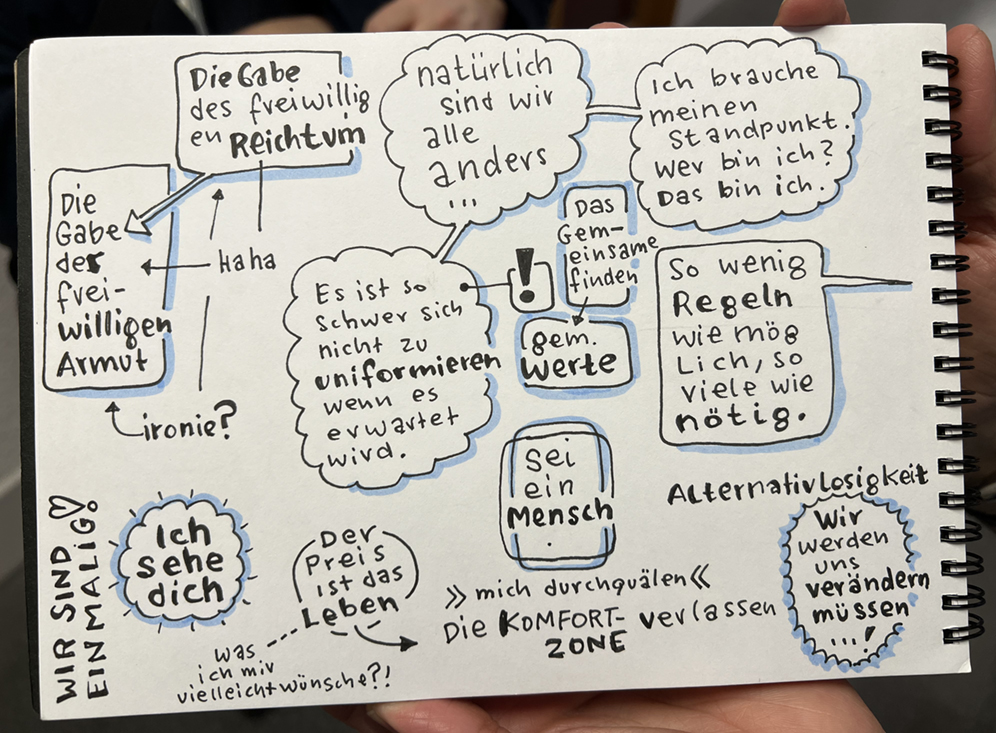 Die Gabe
des freiwillig
en Reichtum
Die
Gabe
der
frei-
willigen
Armut
Haha
ironie?
natürlich
sind wir
alle
anders
...
Ich brauche
meinen
Standpunkt.
Wer bin ich?
Das bin ich.
Es ist so
schwer sich
nicht zu
uniformieren
wenn es
erwartet
wird.
!
Das
Gem-
einsame
finden
gem.
Werte
So wenig
Regeln
wie mög
lich, so
viele wie
nötig.
sei
ein
Mensch
.
WIR SIND
EINMALIG!
Ich
sehe
dich
Der
Preis
ist das
Leben
was
ich mir
vielleicht wünsche?!
»mich durchquälen«
Die KOMFORT-
ZONE verlassen
Alternativlosigkeit
Wir
werden
uns
verändern
müssen
...!